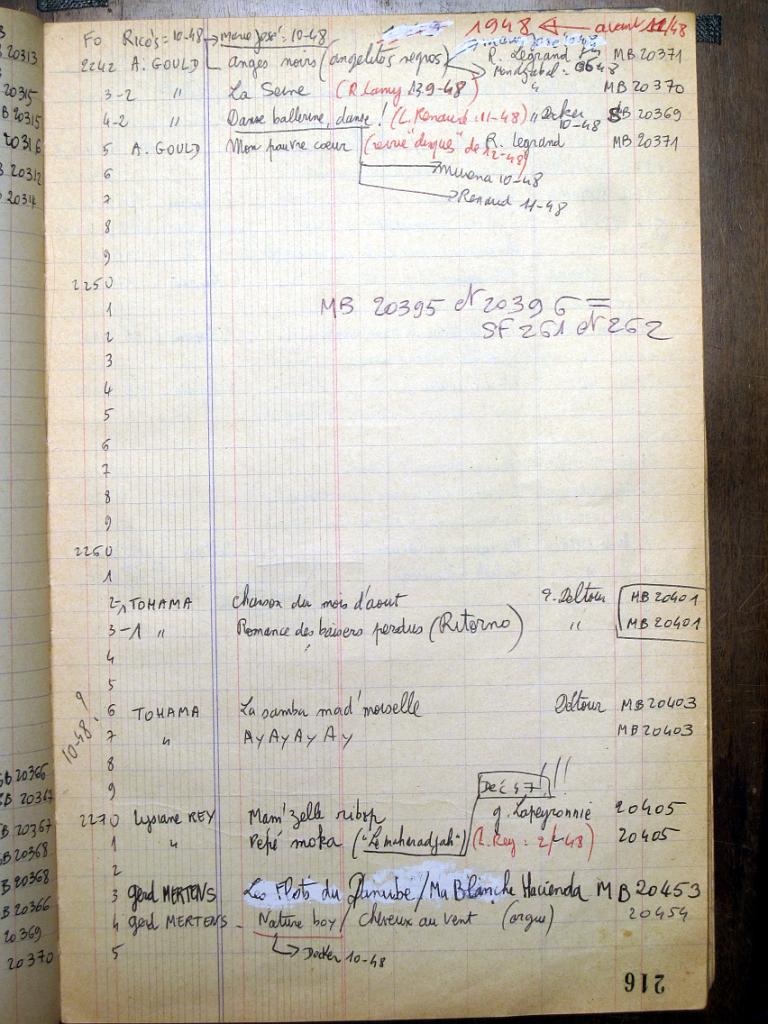 1948 ← avant 11/48
FO Rico's = 10-48 → Marie José: 10-48
2242 A. GOULD anges noirs (angelitos negros) R. Legrand MB 20371
3-2 " La Seine (R. Lamy 13.9-48) " MB 20370
4-2 " Danse ballerine, danse ! (L. Renaud: 11-48) " Decker 10-48 SB 20369
5 A. GOULD Mon pauvre cœur (revue "disques" de 12-48) R. Legrand MB 20371
6 → Murena 10-48
7 → Renaud 11-48
8
9
2250
1 MB 20395 et 20396 =
2 SF 261 et 262
3
4
5
6
7
8
9
2260
1
2-1 TOHAMA chanson du mois d'aout Deltour MB 20401
3-1 " Romance des baisers perdus (Ritorno) " MB 20401
4
5
10-48 ?
6 TOHAMA La samba mad'moiselle Deltour MB 20403
7 " Ay Ay Ay Ay MB 20403
8
9 Dec 47 !!!
2270 Lysiane REY Mam'zelle ribop g. Lapeyronnie 20405
1 " Pépé moka ("Le maharadjah") (L. Rey: 2/-48) 20405
2
3 gerd MERTENS Les Flots du Danube / Ma Blanche Hacienda MB 20453
4 gerd MERTENS - Nature boy / cheveux au vent (orgue) 20454
5 → Decker 10-48
216
20313
20315
B 20315
20316
20312
20314
SB 20366
SB 20367
B 20367
SB 20368
B 20368
B 20366
20369
20370